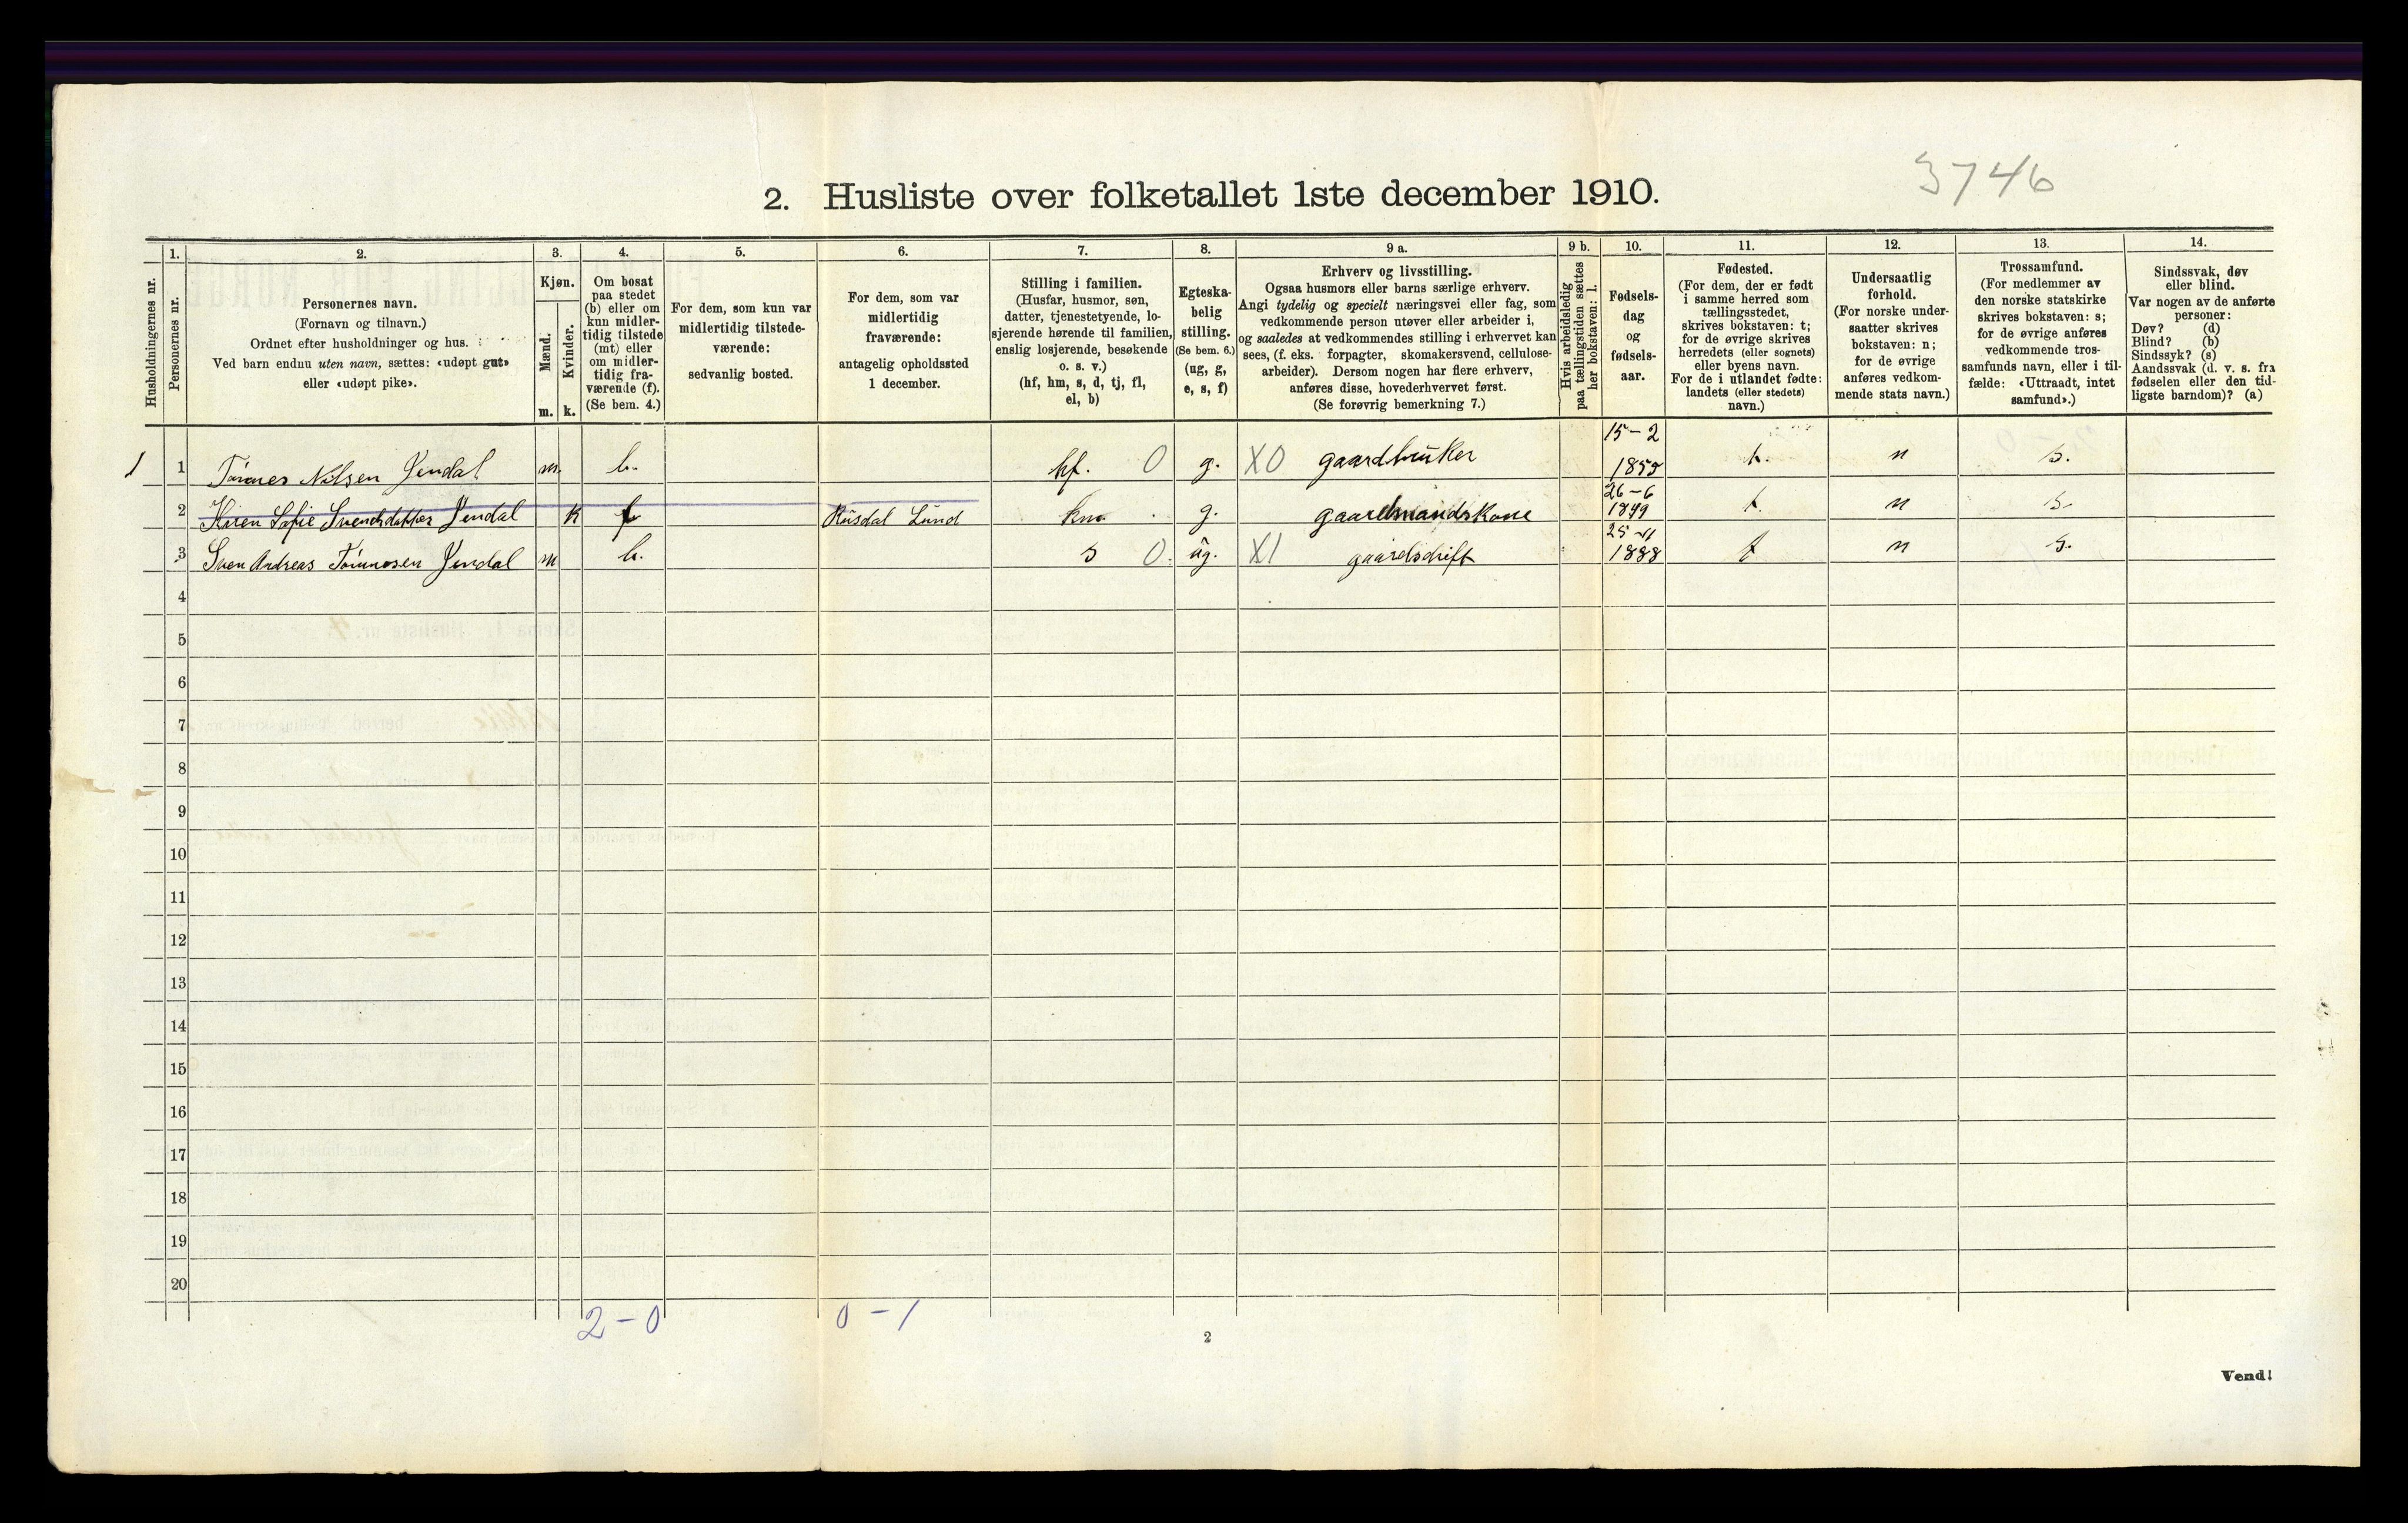 3746
2. Husliste over folketallet 1ste december 1910.
Husholdningernes nr.
1.
Personernes nr.
2.
Personernes navn.
(Fornavn og tilnavn.)
Ordnet efter husholdninger og hus.
Ved barn endnu uten navn, sættes: «udøpt gut»
eller «udøpt pike».
3.
Kjøn.
Mænd.
m.
Kvinder.
k.
4.
Om bosat
paa stedet
(b) eller om
kun midler-
tidig tilstede
(mt) eller
om midler-
tidig fra-
værende (f).
(Se bem. 4.)
5.
For dem, som kun var
midlertidig tilstede-
værende:
sedvanlig bosted.
6.
For dem, som var
midlertidig
fraværende:
antagelig opholdssted
1 december.
7.
Stilling i familien.
(Husfar, husmor, søn,
datter, tjenestetyende, lo-
sjerende hørende til familien,
enslig losjerende, besøkende
o. s. v.)
(hf, hm, s, d, tj, fl,
el, b)
8.
Egteska-
belig
stilling.
(Se bem. 6.)
(ug, g,
e, s, f)
9 a.
Erhverv og livsstilling.
Ogsaa husmors eller barns særlige erhverv.
Angi tydelig og specielt næringsvei eller fag, som
vedkommende person utøver eller arbeider i,
og saaledes at vedkommendes stilling i erhvervet kan
sees, (f. eks. forpagter, skomakersvend, cellulose-
arbeider). Dersom nogen har flere erhverv,
anføres disse, hovederhvervet først.
(Se forøvrig bemerkning 7.)
9 b.
Hvis arbeidsledig
paa tællingstiden sættes
her bokstaven: l.
10.
Fødsels-
dag
og
fødsels-
aar.
11.
Fødested.
(For dem, der er født
i samme herred som
tællingsstedet,
skrives bokstaven: t;
for de øvrige skrives
herredets (eller sognets)
eller byens navn.
For de i utlandet fødte:
landets (eller stedets)
navn.)
12.
Undersaatlig
forhold.
(For norske under-
saatter skrives
bokstaven: n;
for de øvrige
anføres vedkom-
mende stats navn.)
13.
Trossamfund.
(For medlemmer av
den norske statskirke
skrives bokstaven: s;
for de øvrige anføres
vedkommende tros-
samfunds navn, eller i til-
fælde: «Uttraadt, intet
samfund».)
14.
Sindssvak, døv
eller blind.
Var nogen av de anførte
personer:
Døv? (d)
Blind? (b)
Sindssyk? (s)
Aandssvak (d. v. s. fra
fødselen eller den tid-
ligste barndom)? (a)
1 1 Tønnes Nilsen Jendal m. b. hf. 0 g. X0 gaardbruker 15-2 1855 t. n s.
2 Karen Sofie Svendsdatter Jendal k f Rusdal Lund hm. g. gaardmandskone 26-6 1849 t. n s.
3 Sven Andreas Tønnesen Jendal m b. s 0. ug. X1 gaardsdrift 25-11 1888 t n s.
4
5
6
7
8
9
10
11
12
13
14
15
16
17
18
19
20
2-0 0-1
2
Vend!